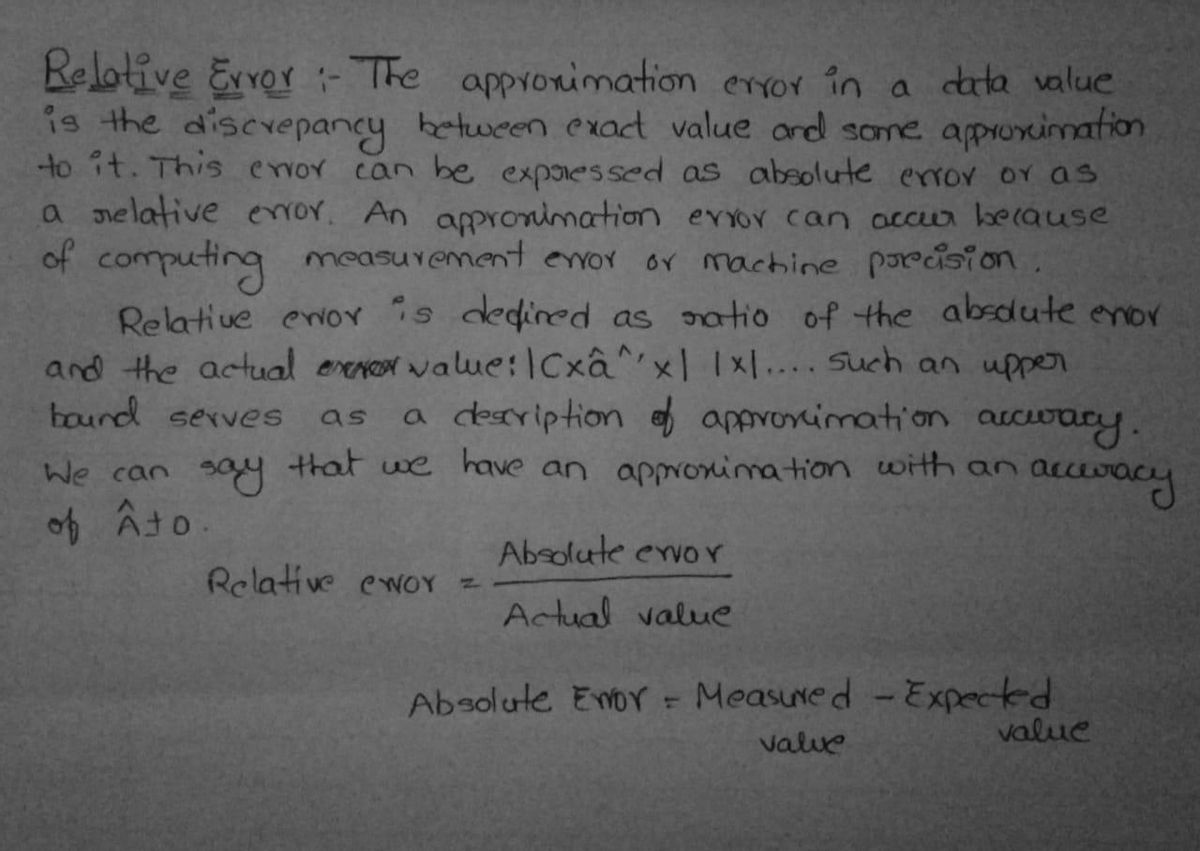 Relative Error :- The approximation error in a data value
is the discrepancy between exact value and some approximation
to it. This error can be expressed as absolute error or as
a relative error. An approximation error can accur because
of computing measurement error or machine precision.
Relative error is defined as ratio of the absolute error
and the actual value: |(xâ^'x| |x|.... such an upper
bound serves as a description of approximation accuracy.
We can say that we have an approximation with an accuracy
of Â±0.
Absolute error
Relative error =
Actual value
Absolute Error = Measured - Expected
value value